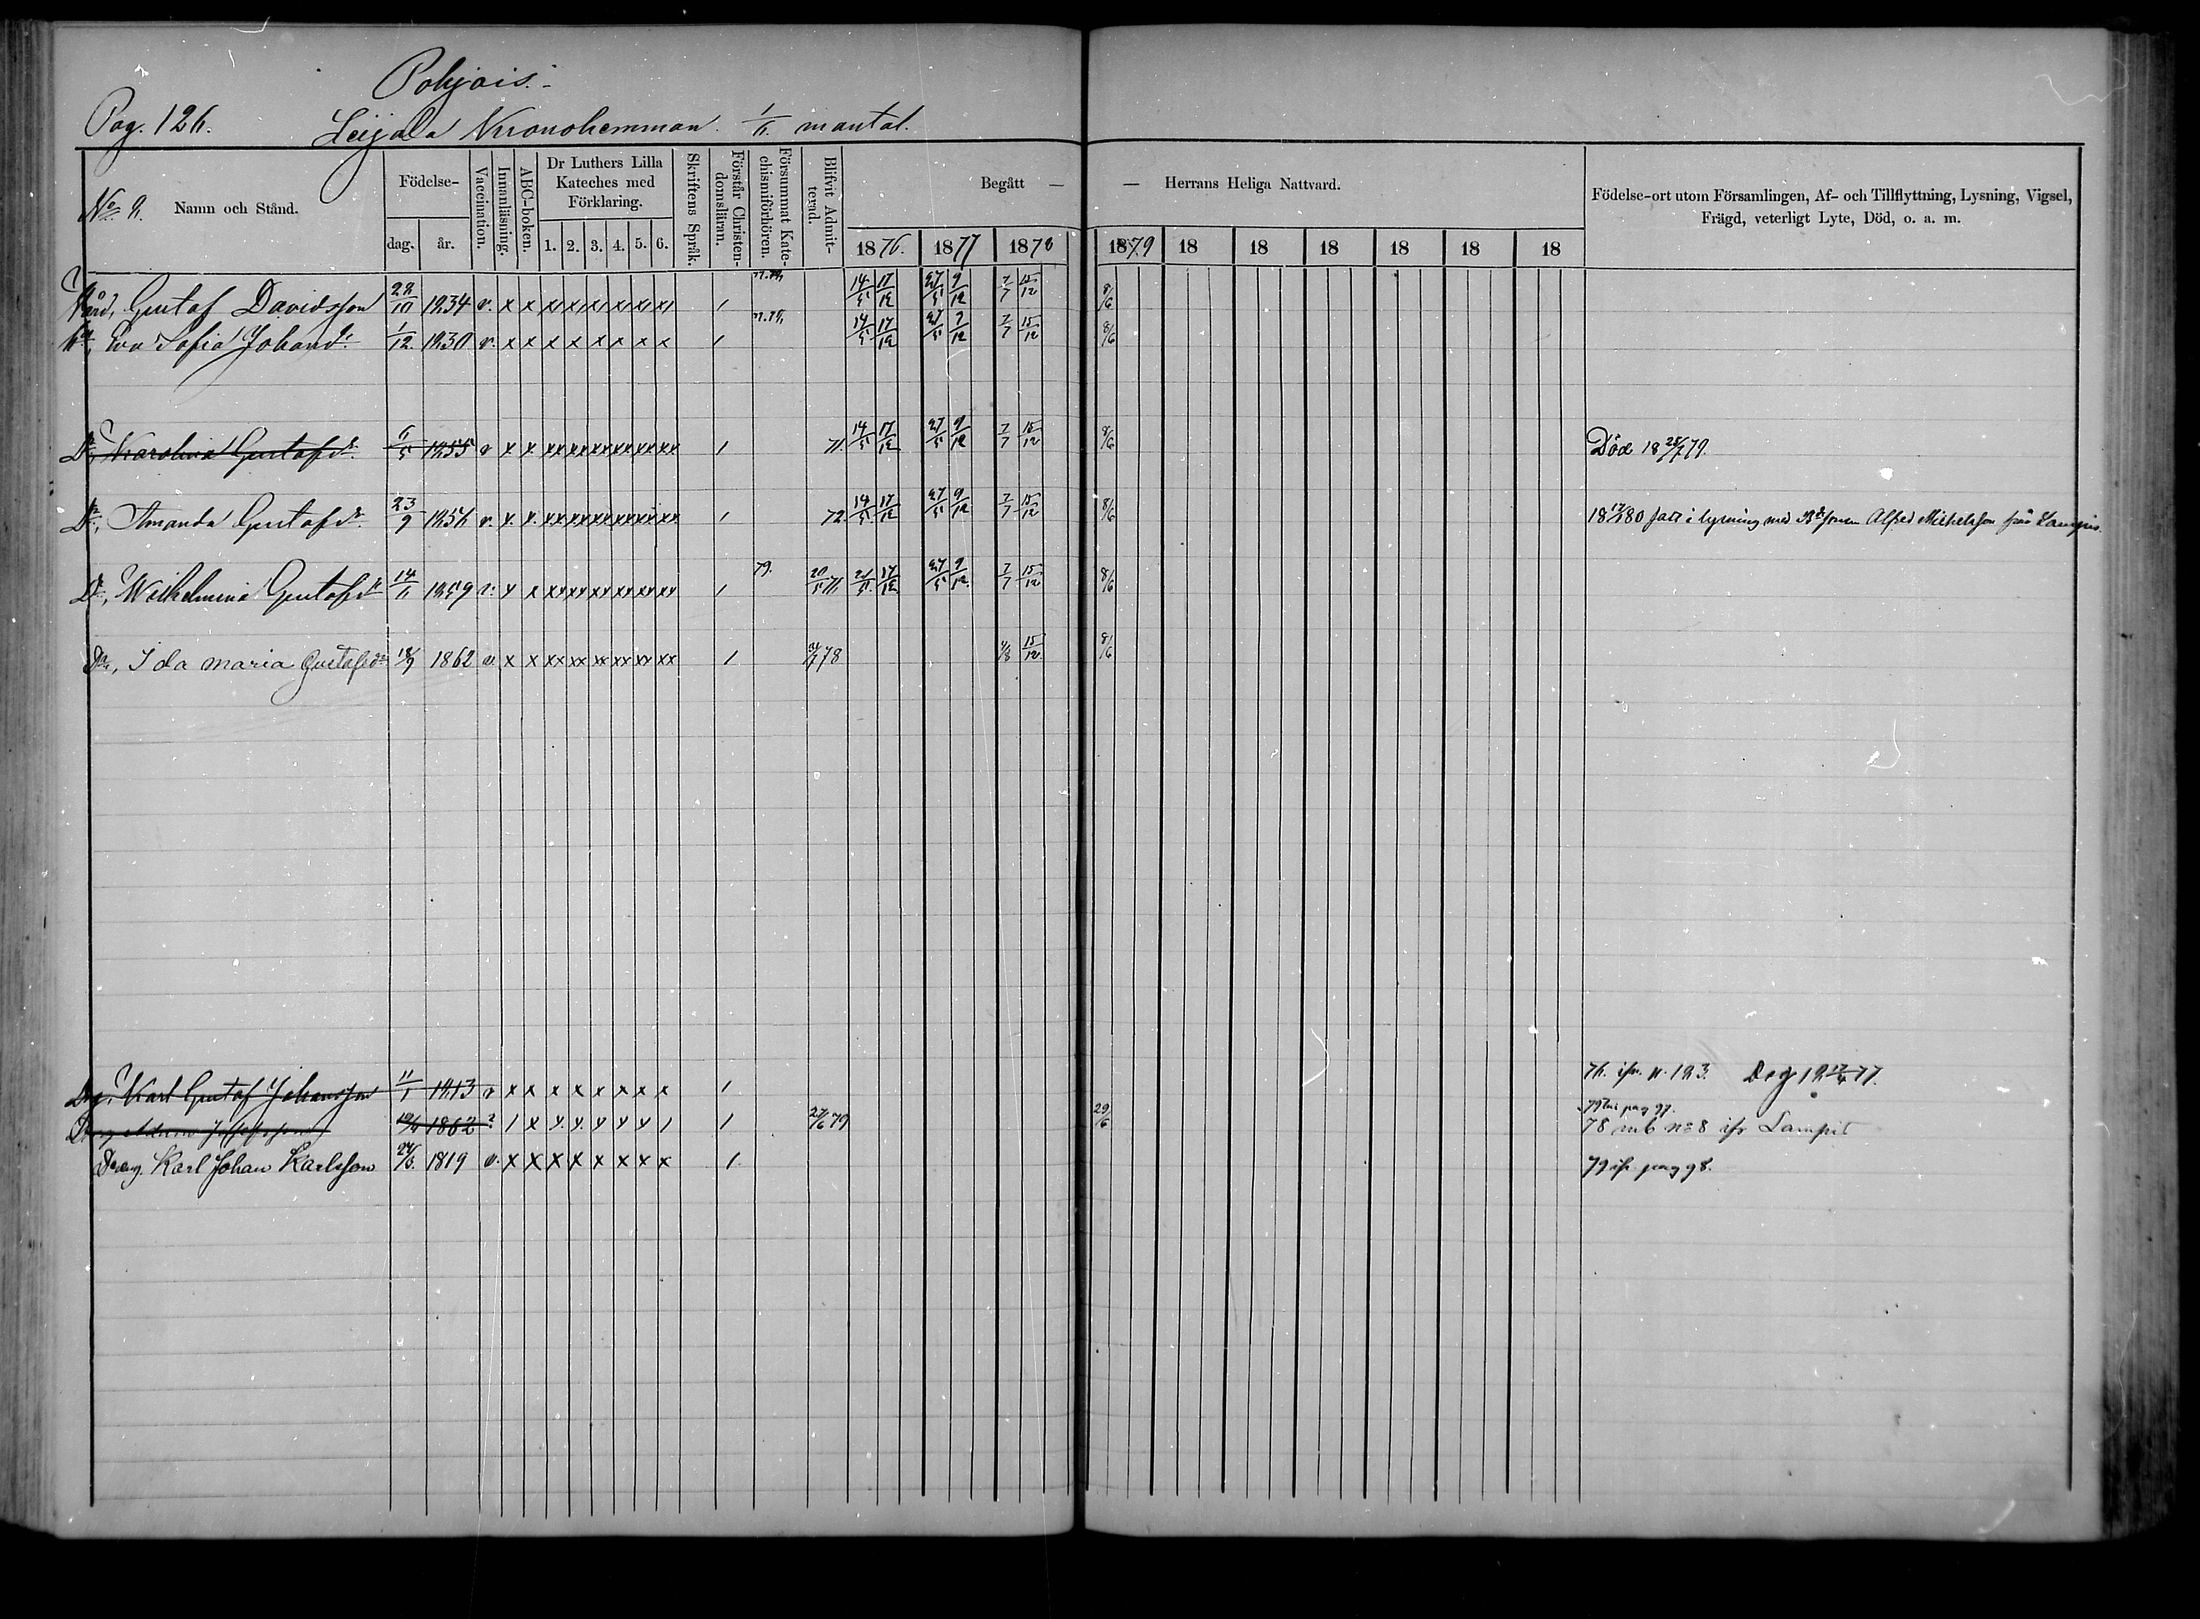 Pohjois.
Pag. 126.
Leijala Kronohemman. 1/6 mantal.
No 2. Namn och Stånd.
Födelse-
dag. år.
Vaccination.
Innanläsning.
ABC-boken.
Dr Luthers Lilla Kateches med Förklaring.
1. 2. 3. 4. 5. 6.
Skriftens Språk.
Förstår Christendomsläran.
Försummat Katechismiförhören.
Blifvit Admitterad.
Begått — — Herrans Heliga Nattvard.
1876. 1877 1878 1879 18 18 18 18 18 18
Födelse-ort utom Församlingen, Af- och Tillflyttning, Lysning, Vigsel,
Frägd, veterligt Lyte, Död, o. a. m.
Gustaf Davidsson 1834 v. x x x x x x x x 14/5 17/12 27/5 9/12 7/7 15/12 8/6
Eva Sofia Johansdr 1/12. 1830 v. x x x x x x x x 14/5 17/12 27/5 9/12 7/7 15/12 8/6
Dr, Karolina Gustafsdr 1855 v x x xx xx xx xx xx xx 71. 14/5 17/12 27/5 9/12 7/7 15/12 8/6 Död 18 28/7 79.
Dr, Amanda Gustafsdr 23/9 1856 v. x. x. xx xx xx xx xx xx 72. 14/5 17/12 27/5 9/12 7/7 15/12 8/6 80 i lysning med Alfred Michelsson från Lampis.
Dr, Wilhelmina Gustafsdr 14/11 1859 v. x x xx xx xx xx xx xx 79. 17/12 27/5 9/12 7/7 15/12 8/6
Dr, Ida Maria Gustafsdr 18/9 1862 v x x xx xx xx xx xx xx 78 15/12. 8/6
Drg, Karl Gustaf Johansson 11/1 1813 v x x x x x x x x 76. ifr. p. 123. 77.
Josefsson 1862 x x x x x 79 29/6 79 till pag 97.
78 mb no 8 ifr Lampis
Dreng. Karl Johan Karlsson 1819 v. x x x x x x x x 79 ifr. pag 98.